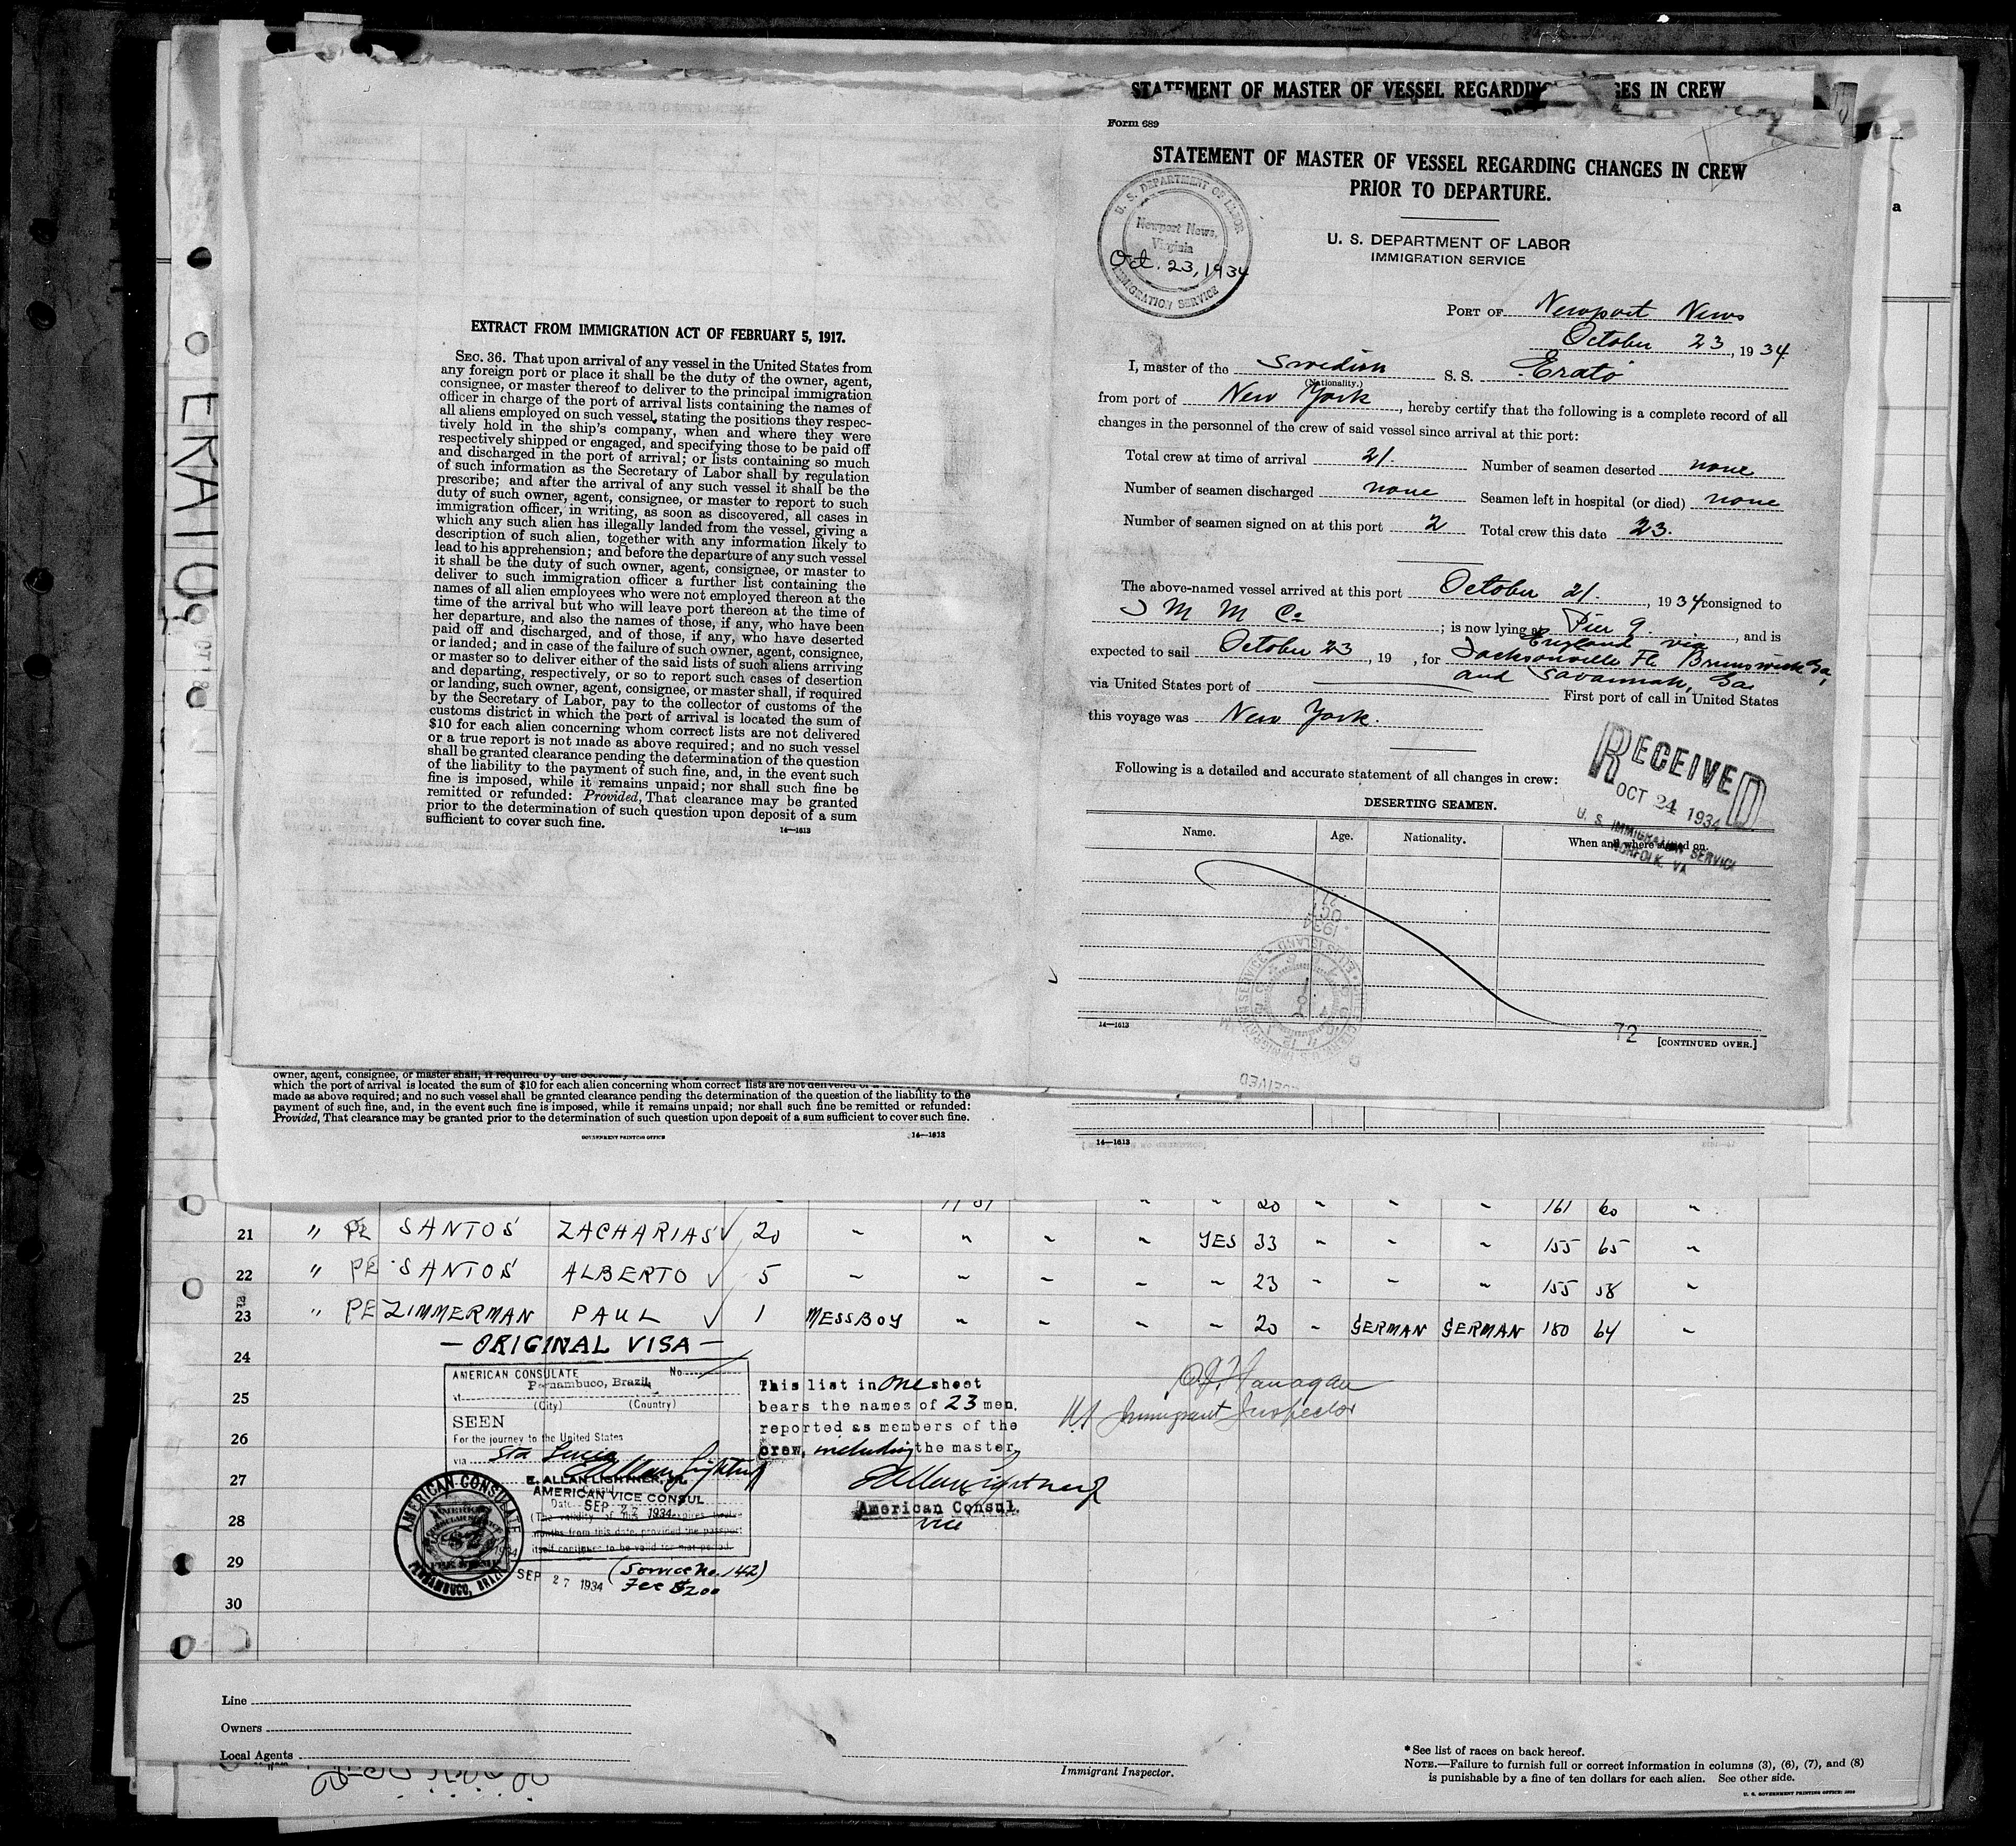 STATEMENT OF MASTER OF VESSEL REGARDING CHANGES IN CREW
Form 689
STATEMENT OF MASTER OF VESSEL REGARDING CHANGES IN CREW
PRIOR TO DEPARTURE.
U. S. DEPARTMENT OF LABOR
IMMIGRATION SERVICE
U. S. DEPARTMENT OF LABOR
Newport News,
Virginia
Oct. 23, 1934
IMMIGRATION SERVICE
PORT OF Newport News
October 23, 1934
I, master of the Swedish S. S. Erato
(Nationality.)
from port of New York, hereby certify that the following is a complete record of all
changes in the personnel of the crew of said vessel since arrival at this port:
Total crew at time of arrival 21. Number of seamen deserted none
Number of seamen discharged none Seamen left in hospital (or died) none
Number of seamen signed on at this port 2 Total crew this date 23.
The above-named vessel arrived at this port October 21., 1934 consigned to
I M M Co ; is now lying at Pier 9., and is
England via
expected to sail October 23, 19 , for Jacksonville Fla Brunswick Ga,
and Savannah, Ga
via United States port of First port of call in United States
this voyage was New York.
Following is a detailed and accurate statement of all changes in crew:
RECEIVED
OCT 24 1934
U. S. IMMIGRATION SERVICE
NORFOLK, VA
DESERTING SEAMEN.
Name. Age. Nationality. When and where signed on.
72
14—1613 [CONTINUED OVER.]
EXTRACT FROM IMMIGRATION ACT OF FEBRUARY 5, 1917.
SEC. 36. That upon arrival of any vessel in the United States from
any foreign port or place it shall be the duty of the owner, agent,
consignee, or master thereof to deliver to the principal immigration
officer in charge of the port of arrival lists containing the names of
all aliens employed on such vessel, stating the positions they respec-
tively hold in the ship's company, when and where they were
respectively shipped or engaged, and specifying those to be paid off
and discharged in the port of arrival; or lists containing so much
of such information as the Secretary of Labor shall by regulation
prescribe; and after the arrival of any such vessel it shall be the
duty of such owner, agent, consignee, or master to report to such
immigration officer, in writing, as soon as discovered, all cases in
which any such alien has illegally landed from the vessel, giving a
description of such alien, together with any information likely to
lead to his apprehension; and before the departure of any such vessel
it shall be the duty of such owner, agent, consignee, or master to
deliver to such immigration officer a further list containing the
names of all alien employees who were not employed thereon at the
time of the arrival but who will leave port thereon at the time of
her departure, and also the names of those, if any, who have been
paid off and discharged, and of those, if any, who have deserted
or landed; and in case of the failure of such owner, agent, consignee,
or master so to deliver either of the said lists of such aliens arriving
and departing, respectively, or so to report such cases of desertion
or landing, such owner, agent, consignee, or master shall, if required
by the Secretary of Labor, pay to the collector of customs of the
customs district in which the port of arrival is located the sum of
$10 for each alien concerning whom correct lists are not delivered
or a true report is not made as above required; and no such vessel
shall be granted clearance pending the determination of the question
of the liability to the payment of such fine, and, in the event such
fine is imposed, while it remains unpaid; nor shall such fine be
remitted or refunded: Provided, That clearance may be granted
prior to the determination of such question upon deposit of a sum
sufficient to cover such fine.
14—1613
ERATO
owner, agent, consignee, or master shall, if required by the Secretary
which the port of arrival is located the sum of $10 for each alien concerning whom correct lists are not delivered
made as above required; and no such vessel shall be granted clearance pending the determination of the question of the liability to the
payment of such fine, and, in the event such fine is imposed, while it remains unpaid; nor shall such fine be remitted or refunded:
Provided, That clearance may be granted prior to the determination of such question upon deposit of a sum sufficient to cover such fine.
GOVERNMENT PRINTING OFFICE 14—1613
14—1613
20 161 60
21 " PE SANTOS ZACHARIAS 20 YES 33 155 65
22 " PE SANTOS ALBERTO 5 23 155 58
23 " PE ZIMMERMAN PAUL 1 MESSBOY 20 GERMAN GERMAN 180 64
24
25
26
27
28
29
30
— ORIGINAL VISA —
AMERICAN CONSULATE No.
at Pernambuco, Brazil
(City) (Country)
SEEN
For the journey to the United States
via Sta Lucia
E. ALLAN LIGHTNER, JR.
AMERICAN VICE CONSUL
Date SEP 27 1934
(The validity of this expires twelve
months from this date, provided the passport
itself continues to be valid for that period.
(Service No. 142)
Fee $2.00
SEP 27 1934
AMERICAN CONSULATE
PERNAMBUCO, BRAZIL
This list in one sheet
bears the names of 23 men,
reported as members of the
crew, including the master,
E Allan Lightner Jr
American Consul.
vice
Flanagan
US Immigrant Inspector
Line
Owners
Local Agents
Immigrant Inspector.
* See list of races on back hereof.
NOTE.—Failure to furnish full or correct information in columns (3), (6), (7), and (8)
is punishable by a fine of ten dollars for each alien. See other side.
U. S. GOVERNMENT PRINTING OFFICE